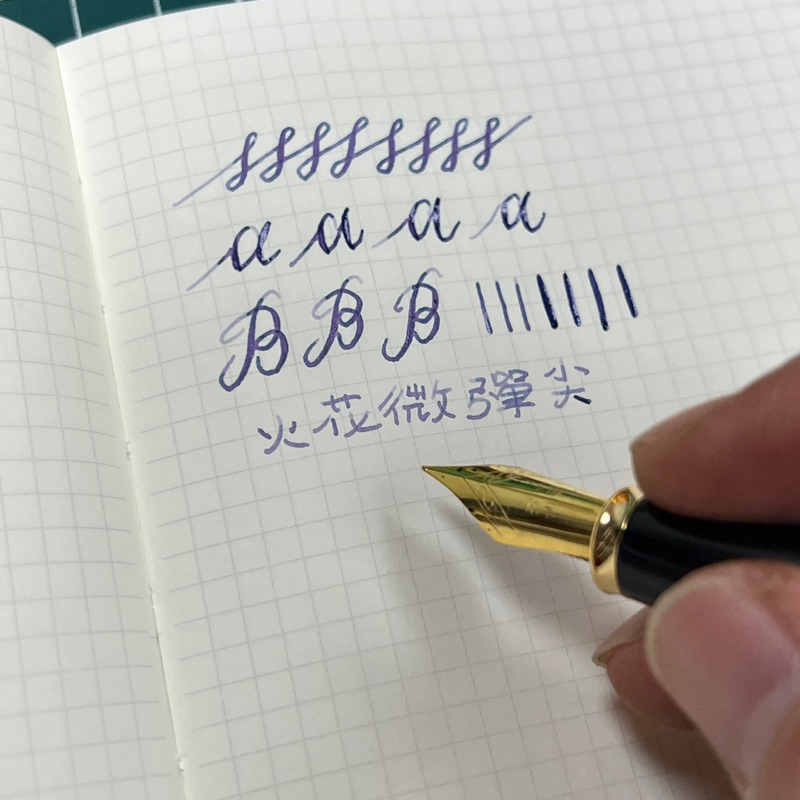 a a a a
B B B
火花微彈尖